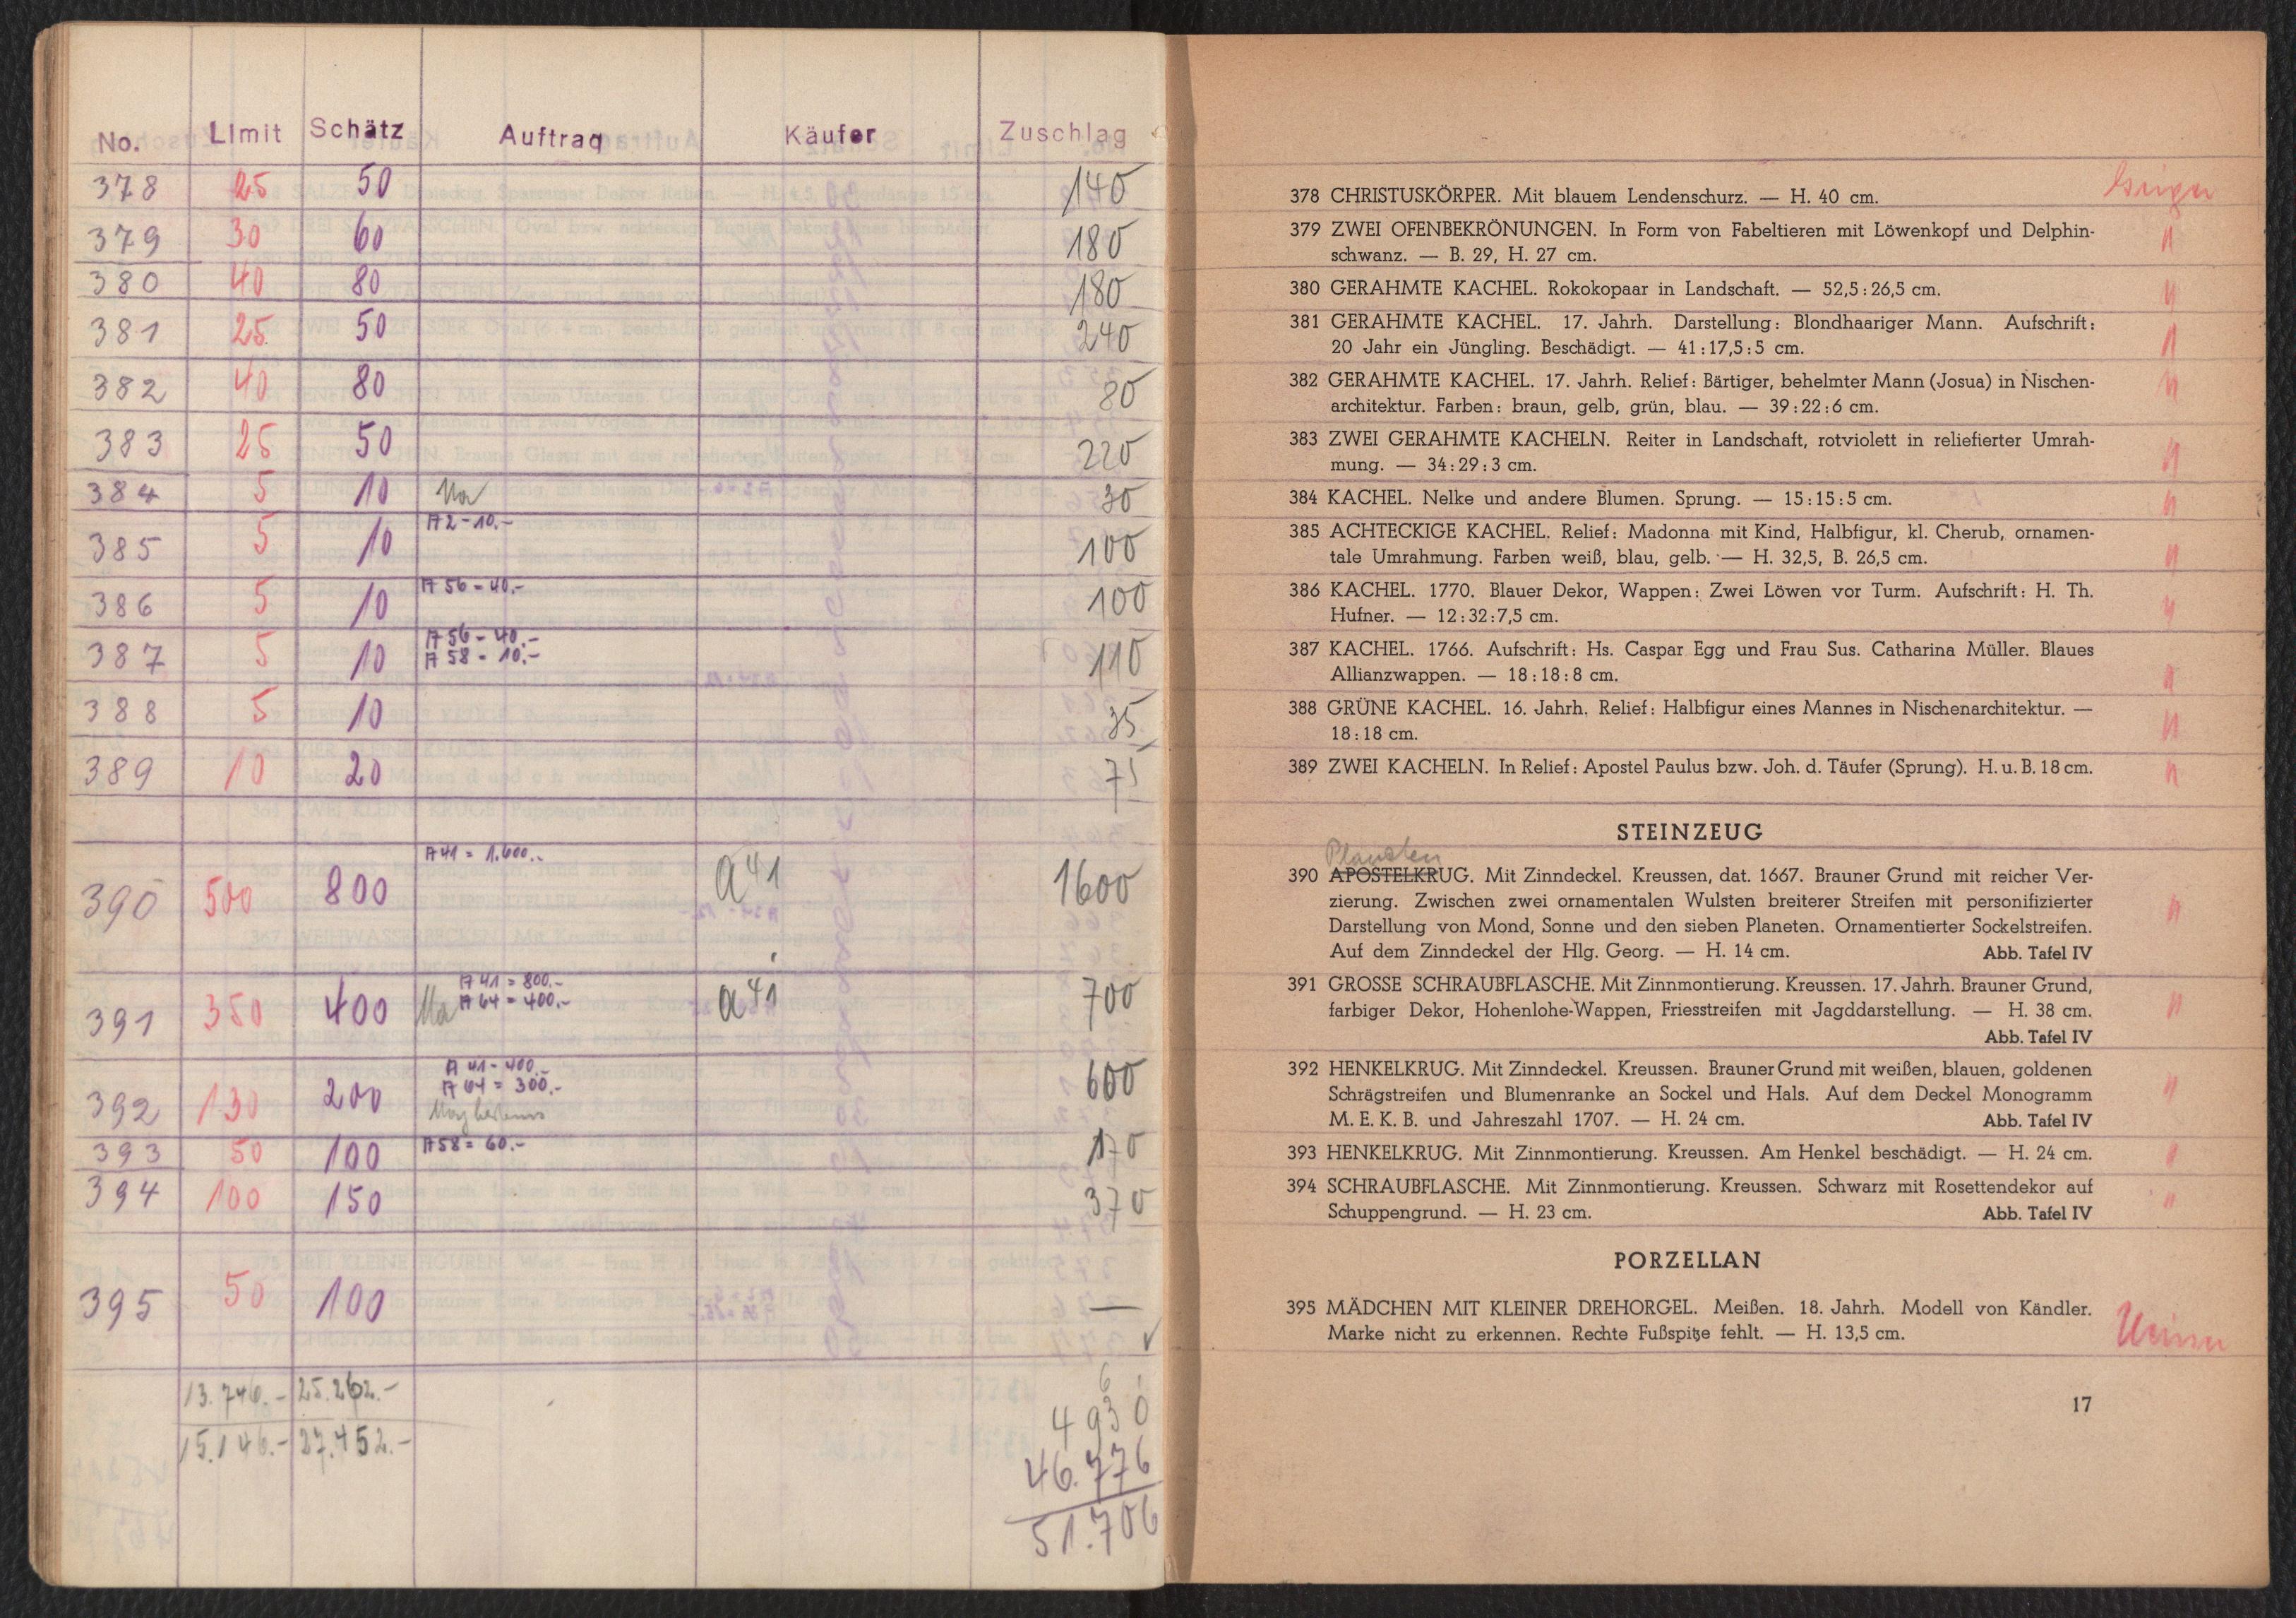 No. Limit Schätz Auftrag Käufer Zuschlag
378 25 50 140
379 30 60 180
380 40 80 180
381 25 50 240
382 40 80 80
383 25 50 220
384 5 10 Ma 30
385 5 10 A 2 - 10.- 100
386 5 10 A 56 = 40.- 100
387 5 10 A 56 - 40.- 110
A 58 - 10.-
388 5 10 35
389 10 20 75
390 500 800 A 41 = 1.600.- a 41 1600
391 350 400 Ma A 41 = 800.- a 41 700
A 64 = 400.-
392 130 200 A 41 - 400.- 600
A 64 = 300.-
393 50 100 A 58 = 60.- 170
394 100 150 370
395 50 100 —
13.746.- 25.262.-
15.146.- 27.452.-
4930
46.776
51.706
378 CHRISTUSKÖRPER. Mit blauem Lendenschurz. — H. 40 cm.
379 ZWEI OFENBEKRÖNUNGEN. In Form von Fabeltieren mit Löwenkopf und Delphin- "
schwanz. — B. 29, H. 27 cm.
380 GERAHMTE KACHEL. Rokokopaar in Landschaft. — 52,5 : 26,5 cm. "
381 GERAHMTE KACHEL. 17. Jahrh. Darstellung: Blondhaariger Mann. Aufschrift: "
20 Jahr ein Jüngling. Beschädigt. — 41 : 17,5 : 5 cm.
382 GERAHMTE KACHEL. 17. Jahrh. Relief: Bärtiger, behelmter Mann (Josua) in Nischen- "
architektur. Farben: braun, gelb, grün, blau. — 39 : 22 : 6 cm.
383 ZWEI GERAHMTE KACHELN. Reiter in Landschaft, rotviolett in reliefierter Umrah- "
mung. — 34 : 29 : 3 cm.
384 KACHEL. Nelke und andere Blumen. Sprung. — 15 : 15 : 5 cm. "
385 ACHTECKIGE KACHEL. Relief: Madonna mit Kind, Halbfigur, kl. Cherub, ornamen- "
tale Umrahmung. Farben weiß, blau, gelb. — H. 32,5, B. 26,5 cm.
386 KACHEL. 1770. Blauer Dekor, Wappen: Zwei Löwen vor Turm. Aufschrift: H. Th. "
Hufner. — 12 : 32 : 7,5 cm.
387 KACHEL. 1766. Aufschrift: Hs. Caspar Egg und Frau Sus. Catharina Müller. Blaues "
Allianzwappen. — 18 : 18 : 8 cm.
388 GRÜNE KACHEL. 16. Jahrh. Relief: Halbfigur eines Mannes in Nischenarchitektur. — "
18 : 18 cm.
389 ZWEI KACHELN. In Relief: Apostel Paulus bzw. Joh. d. Täufer (Sprung). H. u. B. 18 cm. "
STEINZEUG
390 APOSTELKRUG. Mit Zinndeckel. Kreussen, dat. 1667. Brauner Grund mit reicher Ver-
zierung. Zwischen zwei ornamentalen Wulsten breiterer Streifen mit personifizierter "
Darstellung von Mond, Sonne und den sieben Planeten. Ornamentierter Sockelstreifen.
Auf dem Zinndeckel der Hlg. Georg. — H. 14 cm. Abb. Tafel IV
391 GROSSE SCHRAUBFLASCHE. Mit Zinnmontierung. Kreussen. 17. Jahrh. Brauner Grund, "
farbiger Dekor, Hohenlohe-Wappen, Friesstreifen mit Jagddarstellung. — H. 38 cm.
Abb. Tafel IV
392 HENKELKRUG. Mit Zinndeckel. Kreussen. Brauner Grund mit weißen, blauen, goldenen "
Schrägstreifen und Blumenranke an Sockel und Hals. Auf dem Deckel Monogramm
M. E. K. B. und Jahreszahl 1707. — H. 24 cm. Abb. Tafel IV
393 HENKELKRUG. Mit Zinnmontierung. Kreussen. Am Henkel beschädigt. — H. 24 cm. "
394 SCHRAUBFLASCHE. Mit Zinnmontierung. Kreussen. Schwarz mit Rosettendekor auf "
Schuppengrund. — H. 23 cm. Abb. Tafel IV
PORZELLAN
395 MÄDCHEN MIT KLEINER DREHORGEL. Meißen. 18. Jahrh. Modell von Kändler.
Marke nicht zu erkennen. Rechte Fußspitze fehlt. — H. 13,5 cm.
17